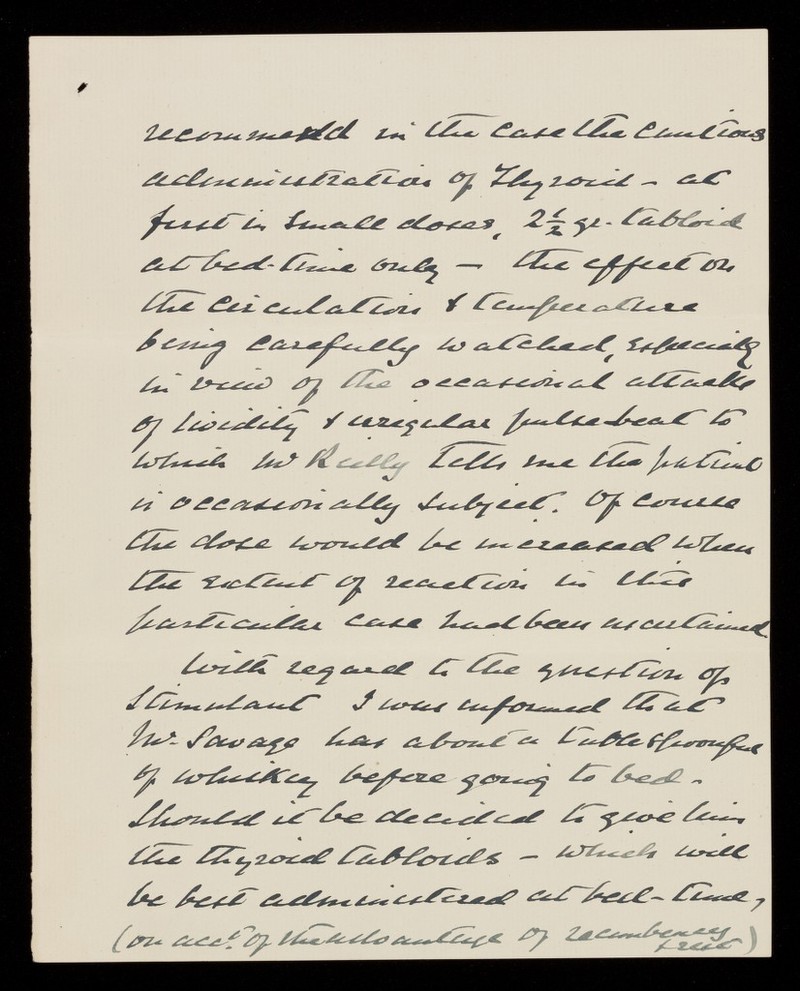 recommend in the case the cautious
administration of Thyroid - at
first in small doses, 2½ gr. tabloid
at bed-time only — the effect on
the circulation & temperature
being carefully watched, especially
in view of the occasional attacks
of lividity & irregular pulse beat to
which Mr Reilly tells me the patient
is occasionally subject. Of course
the dose would be increased when
the extent of reaction in this
particular case had been ascertained
With regard to the question of
stimulant I was informed that
Mr. Savage has about a tablespoonful
of whiskey before going to bed.
Should it be decided to give him
the thyroid tabloids - which will
be best administered at bed-time,
(on acct. of the advantage of recumbency
& rest)